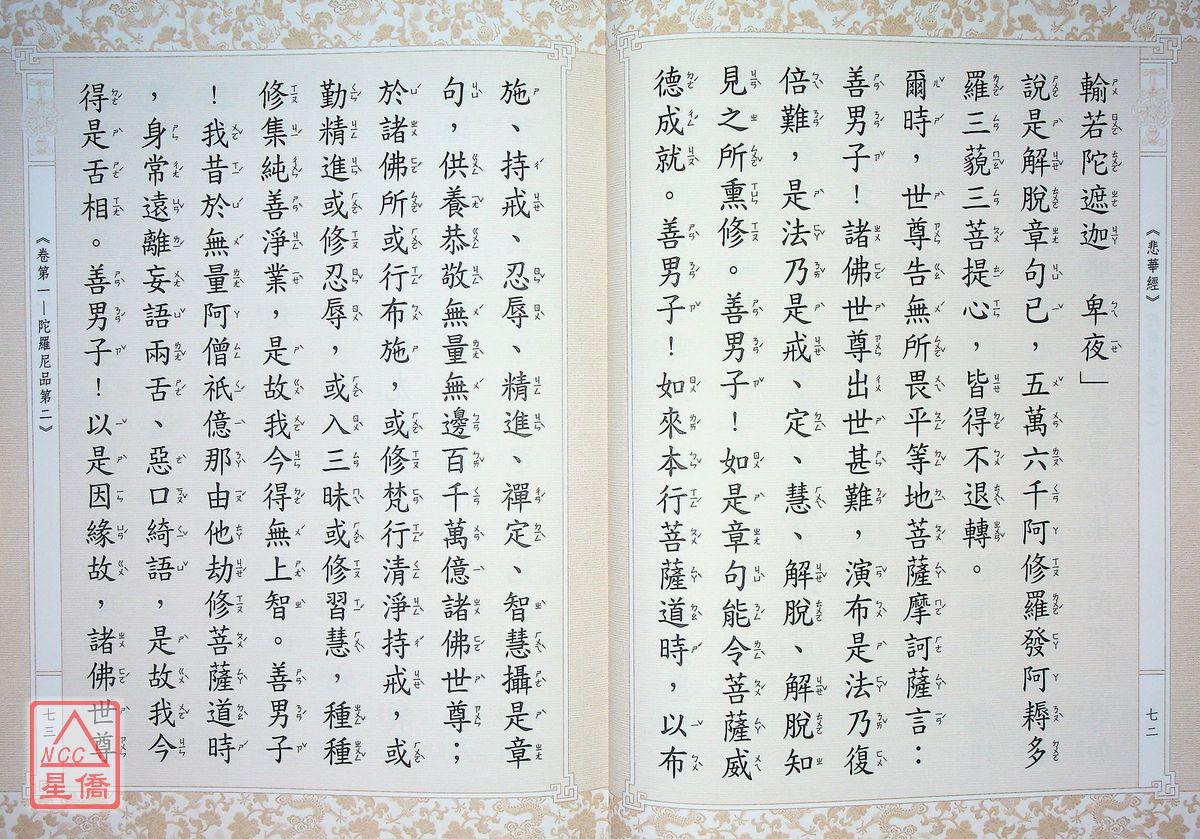 《悲華經》
輸若陀遮迦　卑夜」
說是解脫章句已，五萬六千阿修羅發阿耨多
羅三藐三菩提心，皆得不退轉。
爾時，世尊告無所畏平等地菩薩摩訶薩言：
善男子！諸佛世尊出世甚難，演布是法乃復
倍難，是法乃是戒、定、慧、解脫、解脫知
見之所熏修。善男子！如是章句能令菩薩威
德成就。善男子！如來本行菩薩道時，以布
七二
施、持戒、忍辱、精進、禪定、智慧攝是章
句，供養恭敬無量無邊百千萬億諸佛世尊；
於諸佛所或行布施，或修梵行清淨持戒，或
勤精進或修忍辱，或入三昧或修習慧，種種
修集純善淨業，是故我今得無上智。善男子
！我昔於無量阿僧祇億那由他劫修菩薩道時
，身常遠離妄語兩舌、惡口綺語，是故我今
得是舌相。善男子！以是因緣故，諸佛世尊
《卷第一—陀羅尼品第二》
七三
NCC
星僑